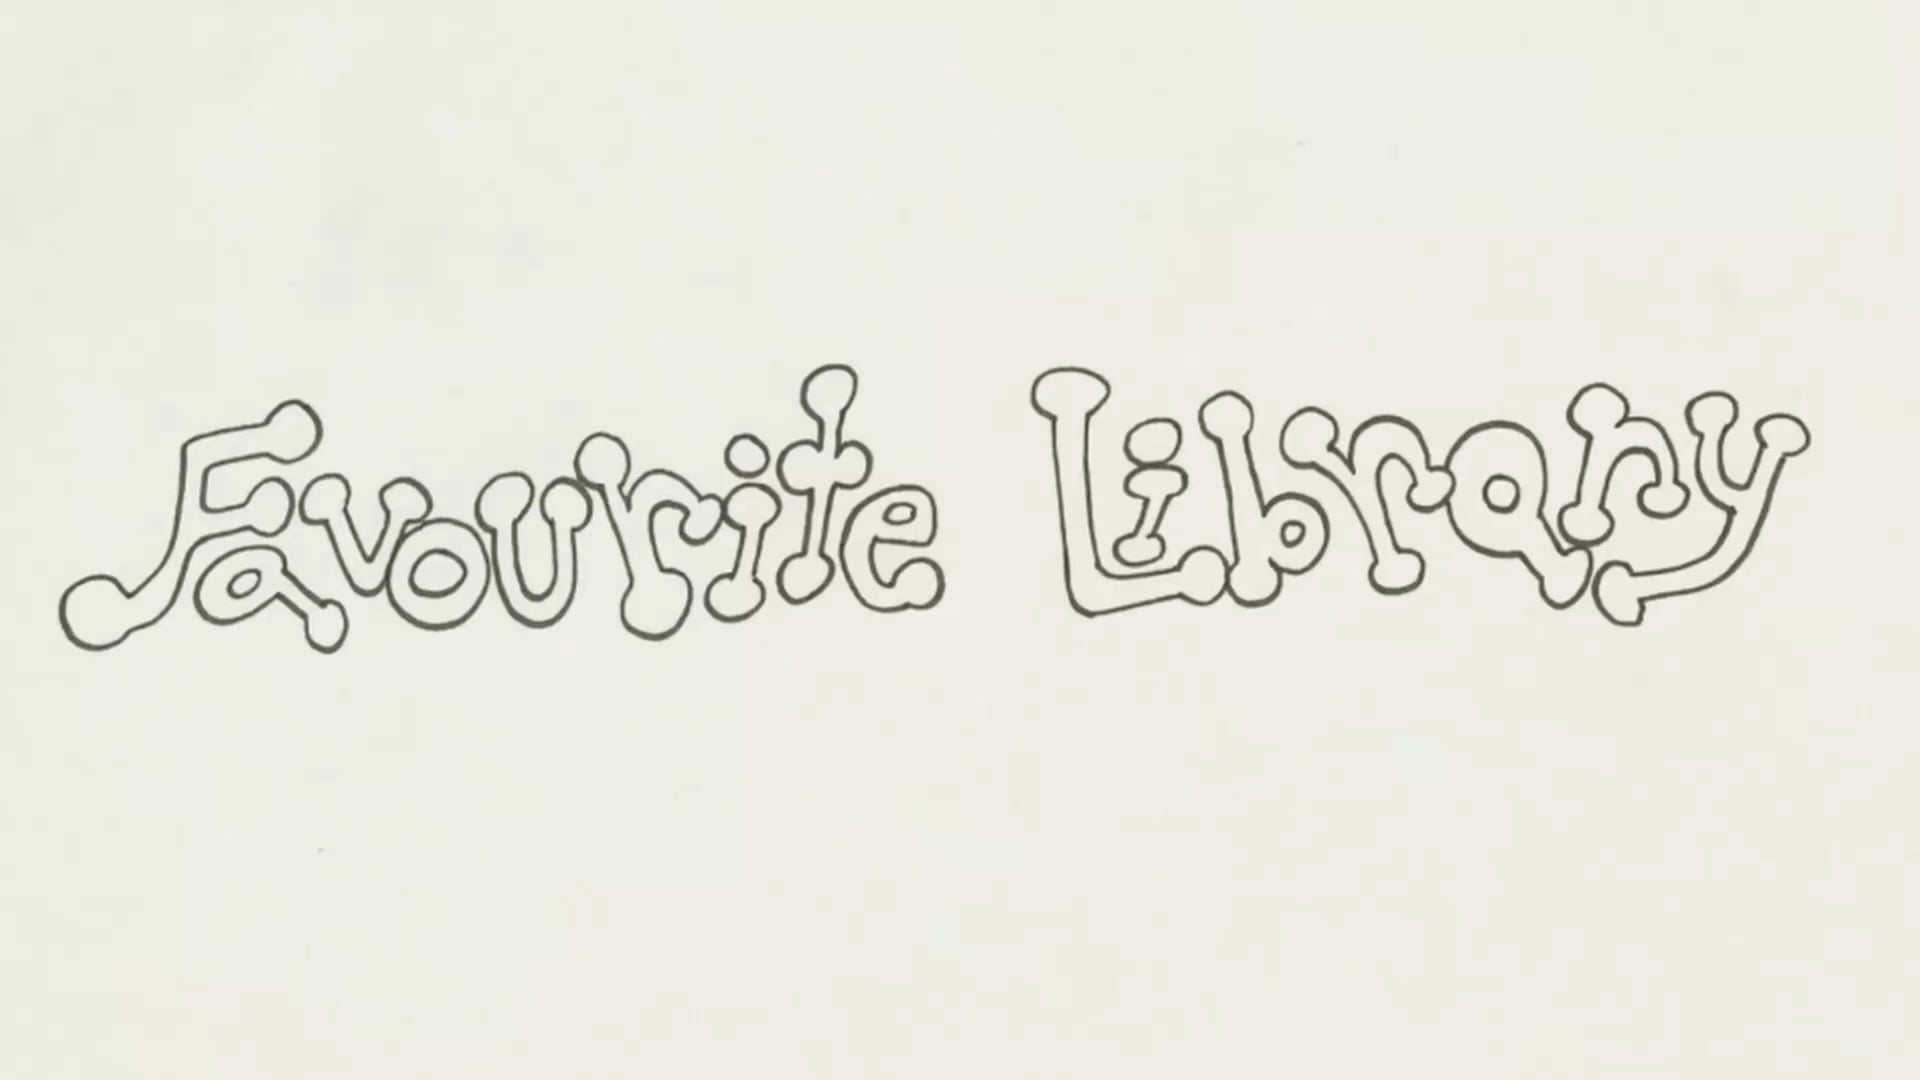 Favourite Library